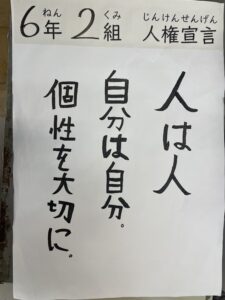 6年2組 人権宣言
ねん くみ じんけんせんげん
人は人
自分は自分。
個性を大切に。